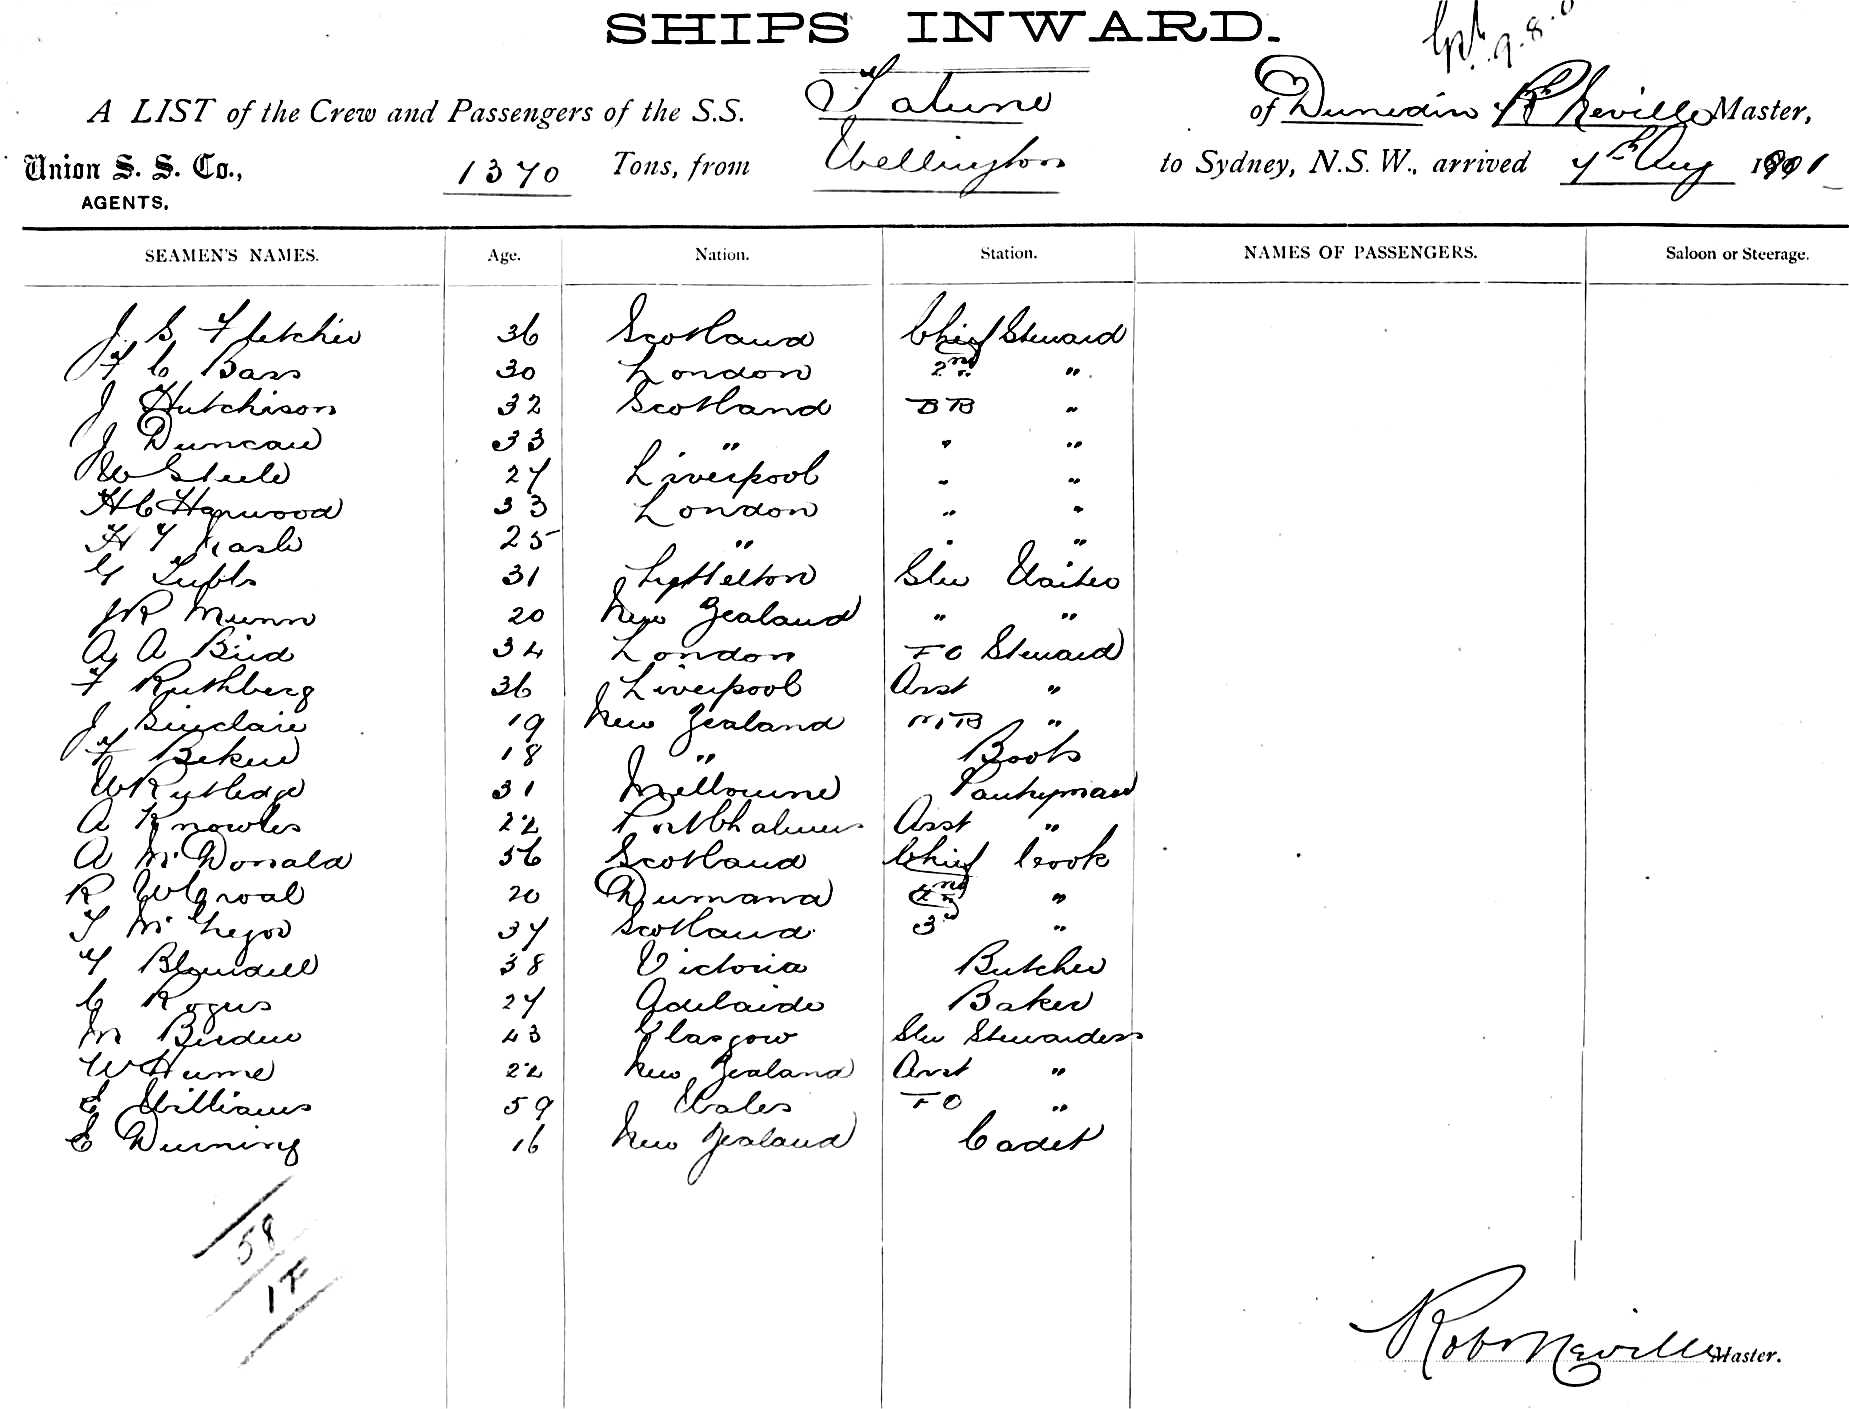 SHIPS INWARD.
A LIST of the Crew and Passengers of the S.S. Talune of Dunedin R Neville Master,
Union S. S. Co., 1370 Tons, from Wellington to Sydney, N.S.W., arrived 7th Aug 1901
AGENTS.
SEAMEN'S NAMES. Age. Nation. Station. NAMES OF PASSENGERS. Saloon or Steerage.
J. G Fletcher 36 Scotland Chief Steward
F C Bass 30 London 2nd "
J Hutchison 32 Scotland BR "
J Duncan 33 " " "
W Steele 27 Liverpool " "
H C Harwood 33 London " "
H T Nash 25 " " "
G Tubbs 31 Lyttelton Stw Waiter
JR Munn 20 New Zealand " "
A A Bird 34 London FC Steward
F Ruthberg 36 Liverpool Asst "
J Sinclair 19 New Zealand MR "
F Baker 18 " Boots
W Rutledge 31 Melbourne Pantryman
A Knowles 22 Port Chalmers Asst "
A McDonald 56 Scotland Chief Cook
R 20 2nd "
T McGregor 37 Scotland 3rd "
G Blundell 38 Victoria Butcher
C Rogers 27 Adelaide Baker
M 43 Glasgow Stw Stewardess
W Hume 22 New Zealand Asst "
E Williams 59 Wales FC "
E Durning 16 New Zealand Cadet
58
17
Robt Neville Master.